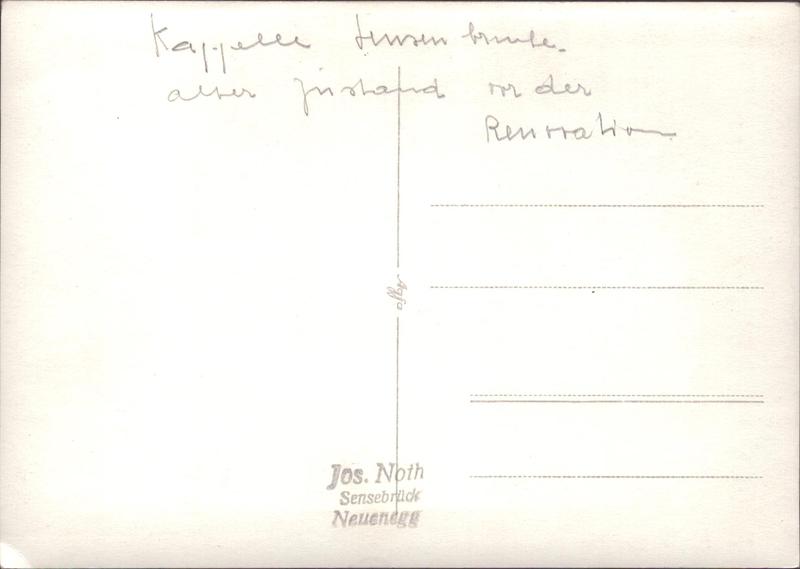 Kappelle Sensenbrücke.
alter Zustand vor der
Renovation
Agfa
Jos. Noth
Sensebrück
Neuenegg